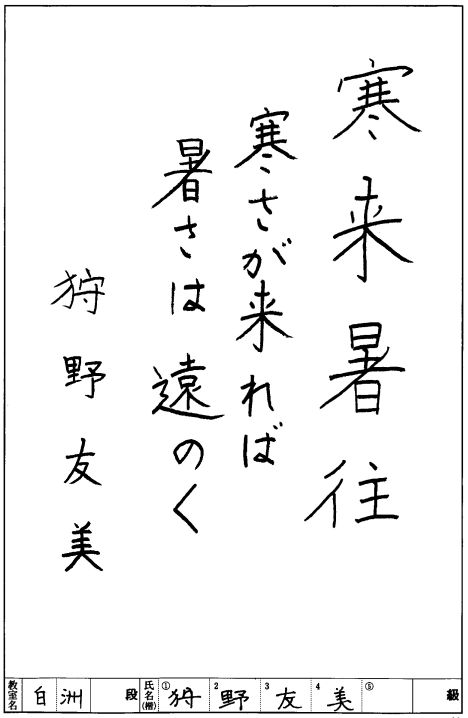 寒来暑往
寒さが来れば
暑さは遠のく
狩野友美
教室名 白洲 段 氏名(楷) ①狩 2野 3友 4美 ⑤ 級